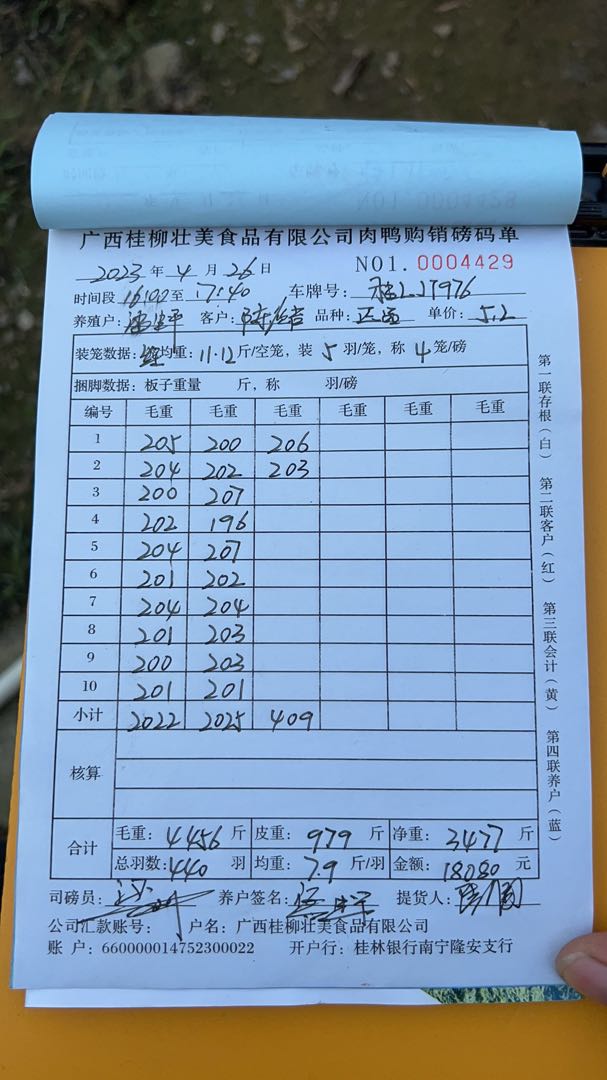 广西桂柳壮美食品有限公司肉鸭购销磅码单
2023 年 4 月 26 日 NO1. 0004429
时间段 16:00 至 17:40 车牌号: 桂LJ7976
养殖户: 客户: 品种: 单价: 5.2
装笼数据: 均重: 11.12 斤/空笼, 装 5 羽/笼, 称 4 笼/磅
捆脚数据: 板子重量 斤, 称 羽/磅
编号 毛重 毛重 毛重 毛重 毛重 毛重
1 205 200 206
2 204 202 203
3 200 207
4 202 196
5 204 207
6 201 202
7 204 204
8 201 203
9 200 203
10 201 201
小计 2022 2025 409
核算
合计 毛重: 4456 斤 皮重: 979 斤 净重: 3477 斤
总羽数: 440 羽 均重: 7.9 斤/羽 金额: 18080 元
司磅员: 养户签名: 提货人:
公司汇款账号: 户名: 广西桂柳壮美食品有限公司
账 户: 660000014752300022 开户行: 桂林银行南宁隆安支行
第一联存根(白) 第二联客户(红) 第三联会计(黄) 第四联养户(蓝)